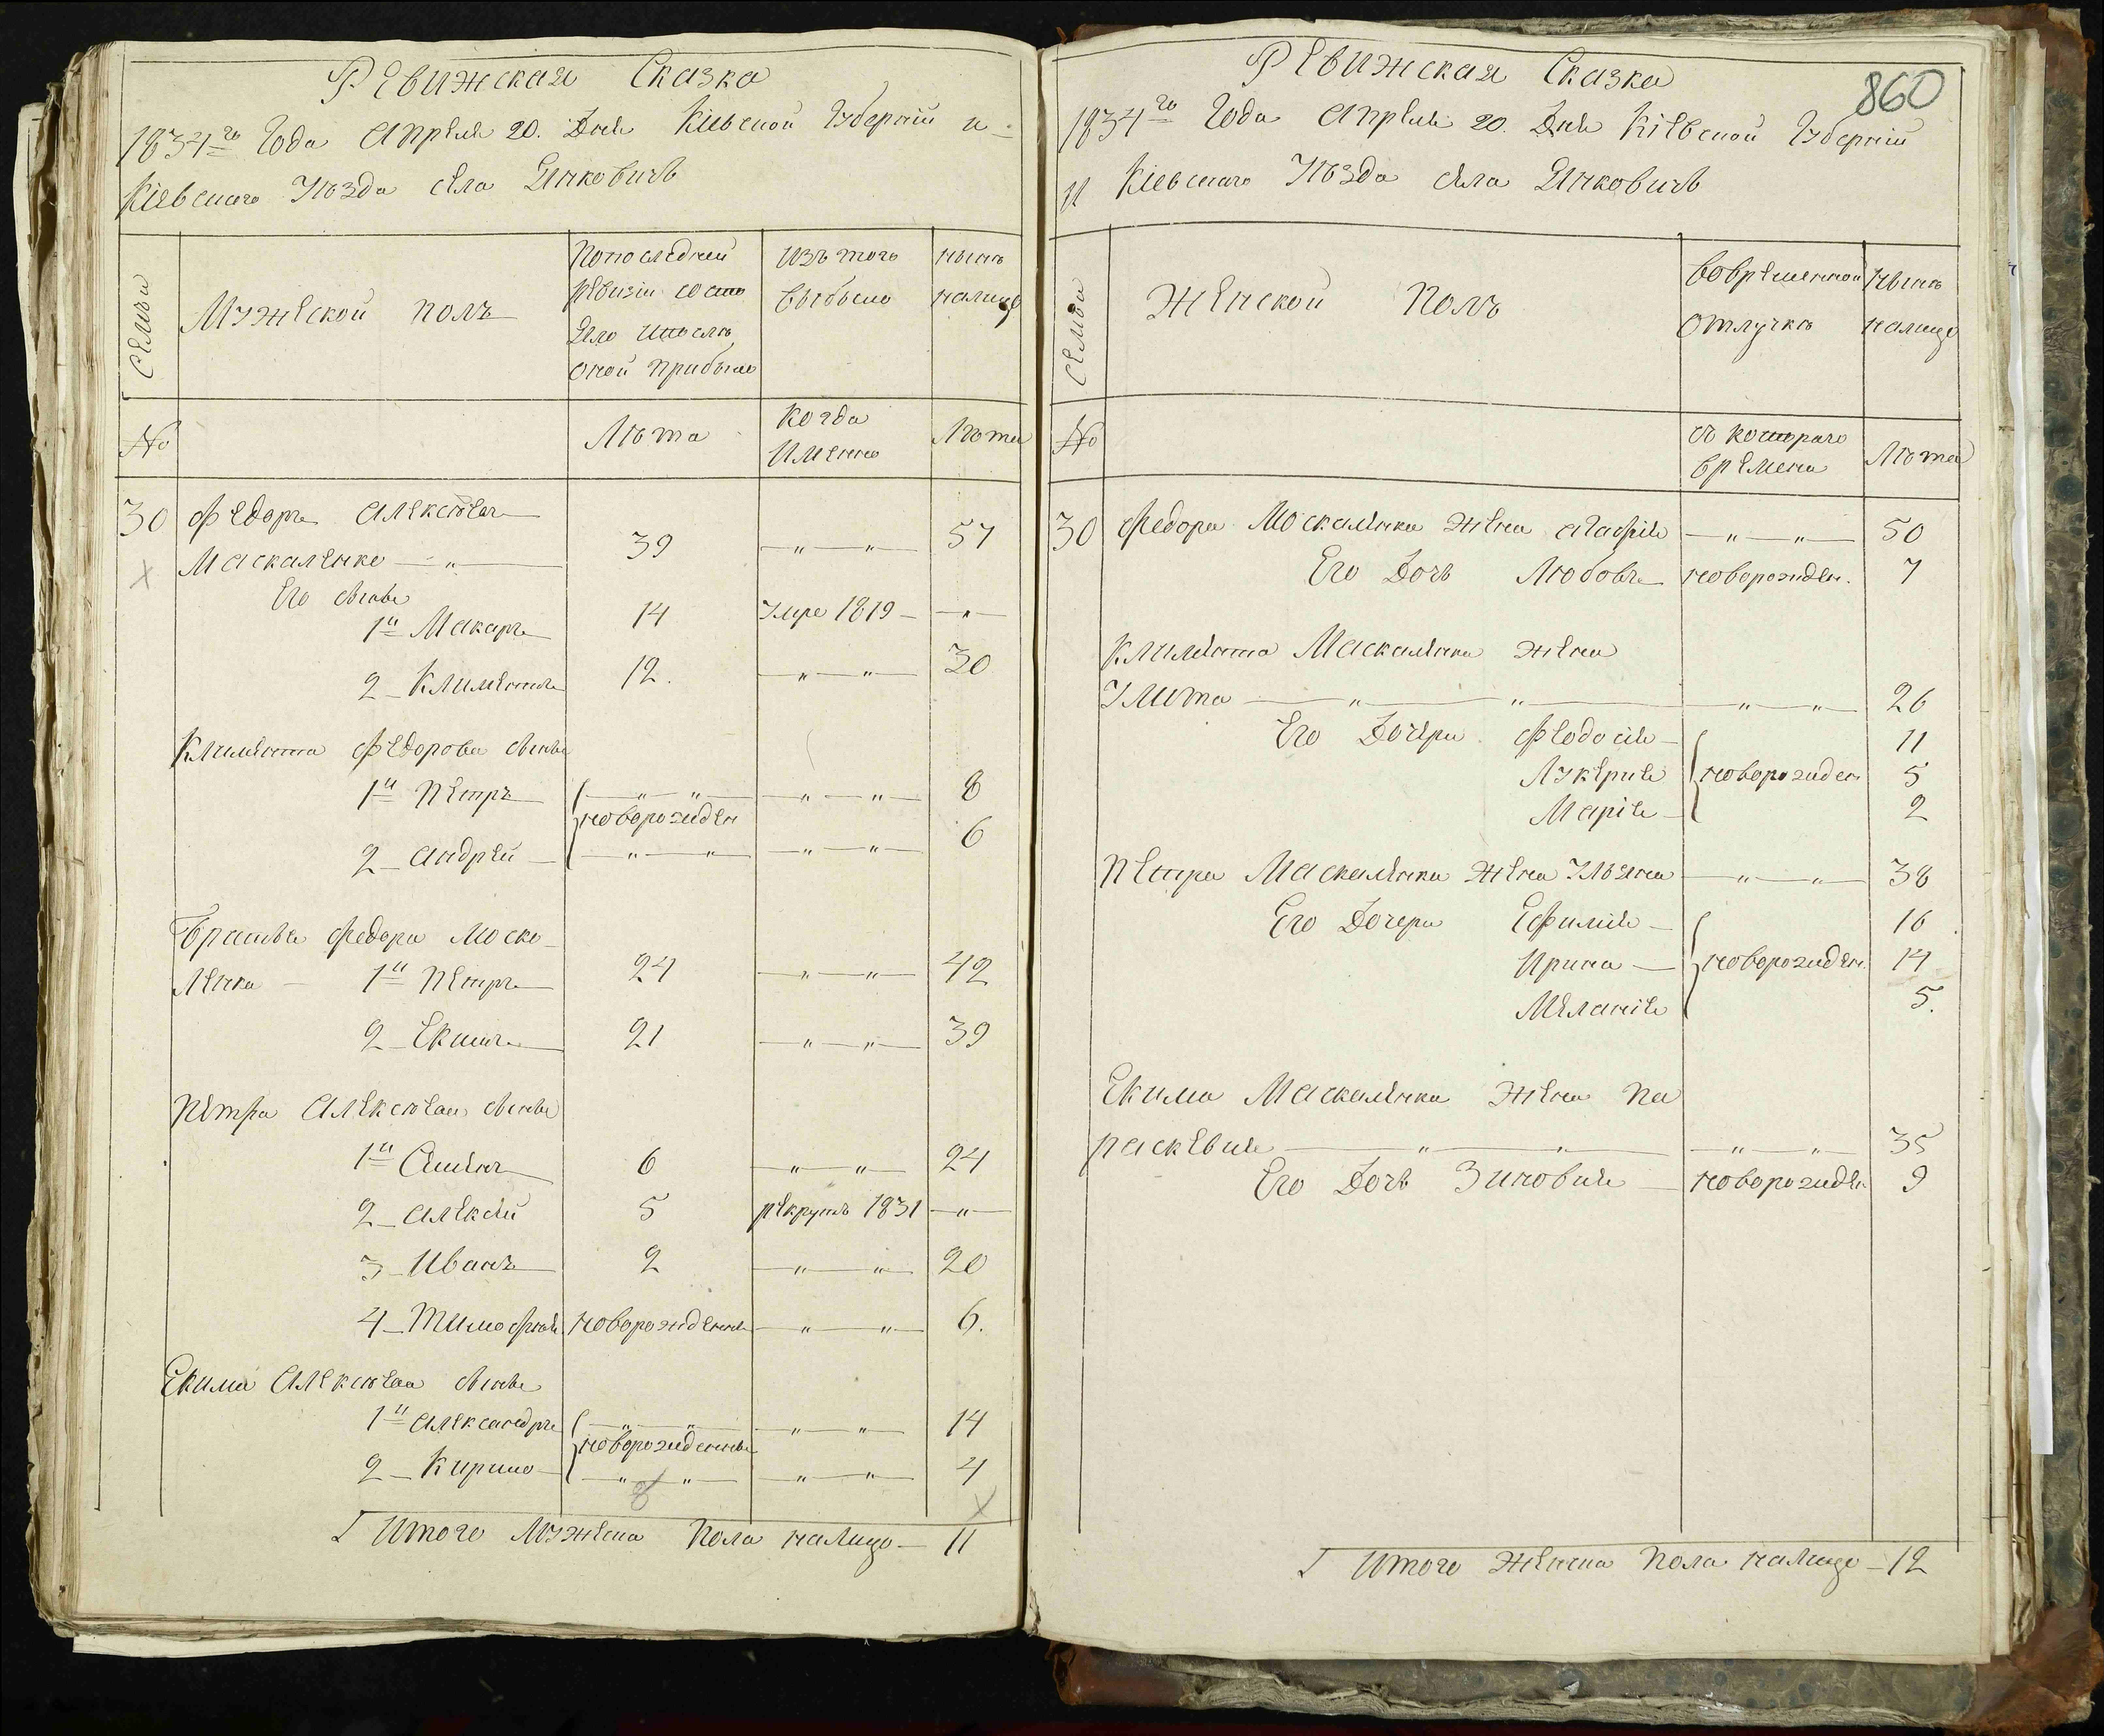 Ревижская Сказка
1834го Года Апреля 20. Дня Кіевской Губерніи и
Кіевского Уѣзда села Янковичь
Семьи
Мужеской полъ
По последней
ревизіи состо
яло и после
оной прибыло
Изъ того
выбыло
нынѣ
налицо
№
Лѣта
Когда
Именно
Лѣта
30 Федоръ Алексѣевъ
Маскаленко — " — 39 — " — " — 57
Его сыновья
1й Макаръ 14 Умре 1819 — " —
2 Климентъ 12. — " — " — 30
Климента Федорова сыновья
1й Петръ — " — " — — " — " — 8
новорожден
2 Андрей — " — " — — " — " — 6
Братья Федора Моска
ленка — 1й Петръ 24 — " — " — 42
2 Екимъ 21 — " — " — 39
Петра Алексѣева сыновья
1й Семенъ 6 — " — " — 24
2 Алексей 5 рекрутъ 1831 — " —
3 Иванъ 2 — " — " — 20
4 Тимофѣй новорожденны — " — " — 6.
Екима Алексѣева сыновья
1й Александръ — " — " — — " — " — 14
новорожденны
2 Кирило — " — " — — " — " — 4
8
Итого Мужеска Пола налицо — 11
860
Ревижская Сказка
1834го Года Апреля 20. Дня Кіевской Губерніи
и Кіевского Уѣзда села Янковичь
Семьи
Женской Полъ
Вовременной
отлучкѣ
нынѣ
налицо
№
съ котораго
времени
Лѣта
30 Федора Москаленка жена Агафия — " — " — 50
Его Дочь Любовь новорожден. 7
Климента Маскаленка жена
Улита — " — " — " — " — 26
Его Дочери Феодосія 11
Лукерия новорожден 5
Марія 2
Петра Маскаленка жена Ульяна — " — " — 38
Его Дочери Ефимія 16
Ирина новорожден. 14
Меланія 5.
Екима Маскаленка жена Па
раскевия — " — " — " — " — 35
Его Дочь Зиновия новорожден 9
Итого Женска Пола налицо — 12